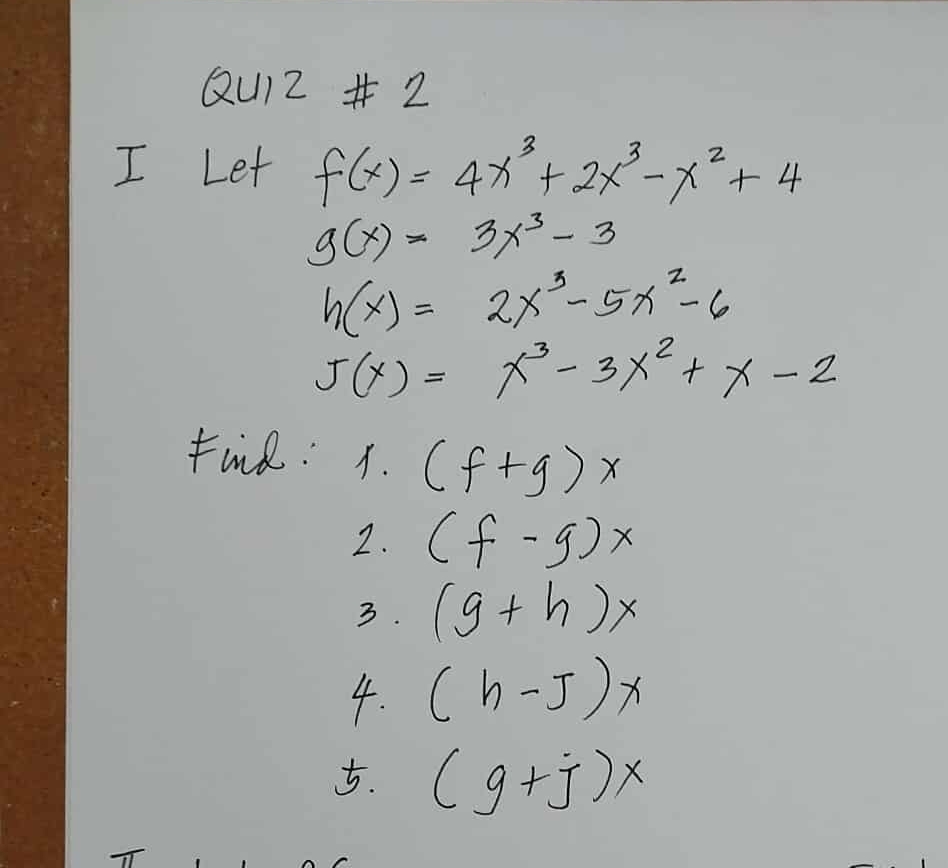 QUIZ # 2
I Let f(x) = 4x³ + 2x³ - x² + 4
g(x) = 3x³ - 3
h(x) = 2x³ - 5x² - 6
J(x) = x³ - 3x² + x - 2
Find: 1. (f+g)x
2. (f-g)x
3. (g+h)x
4. (h-J)x
5. (g+j)x
II